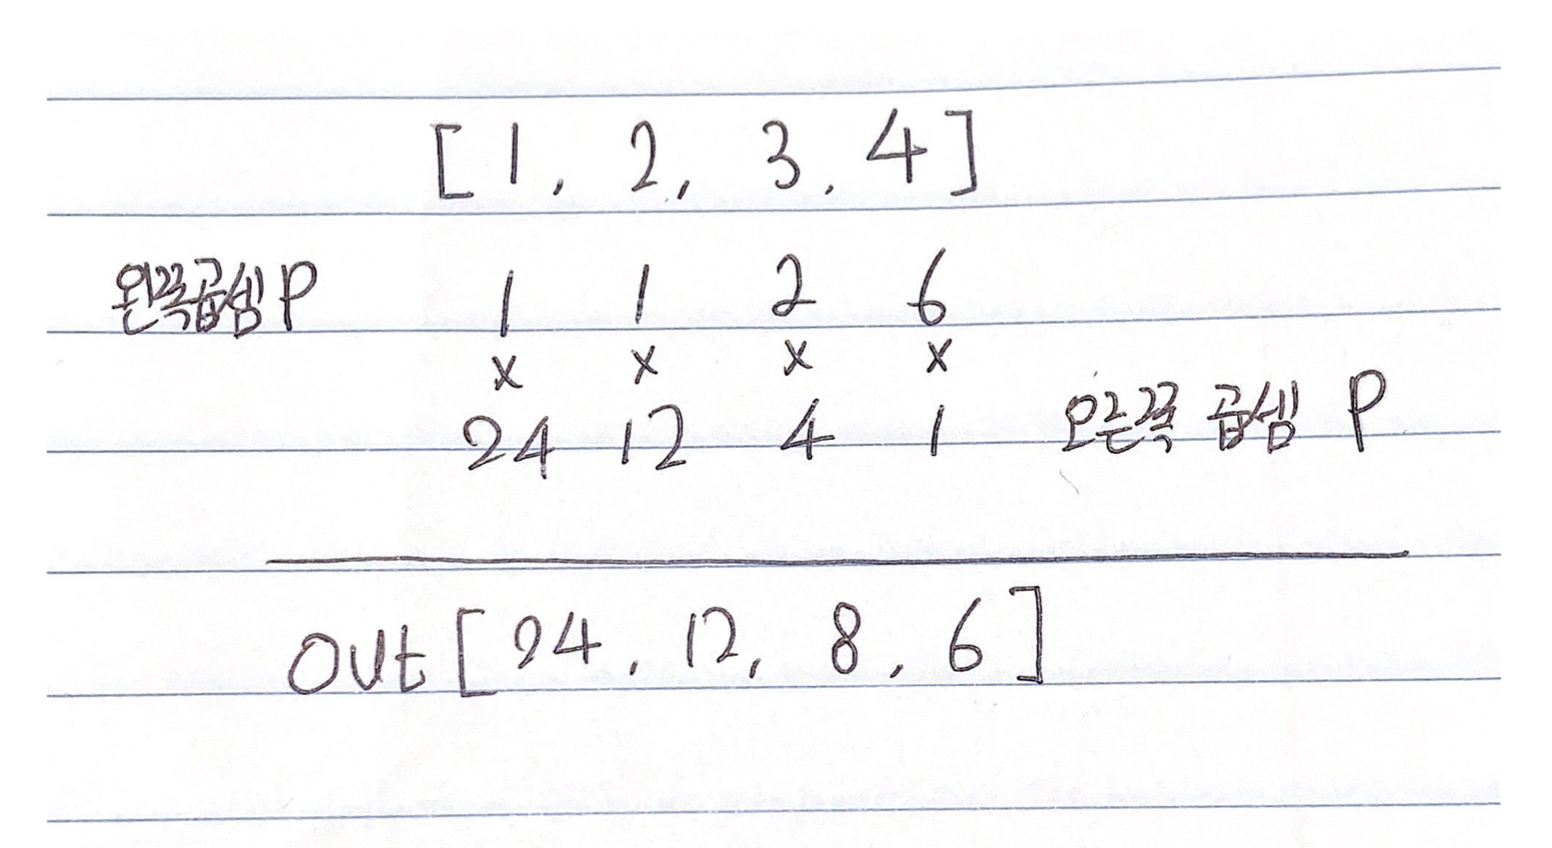 [ 1, 2, 3, 4 ]
왼쪽곱셈 P 1 1 2 6
x x x x
24 12 4 1 오른쪽 곱셈 P
out [ 24, 12, 8, 6 ]